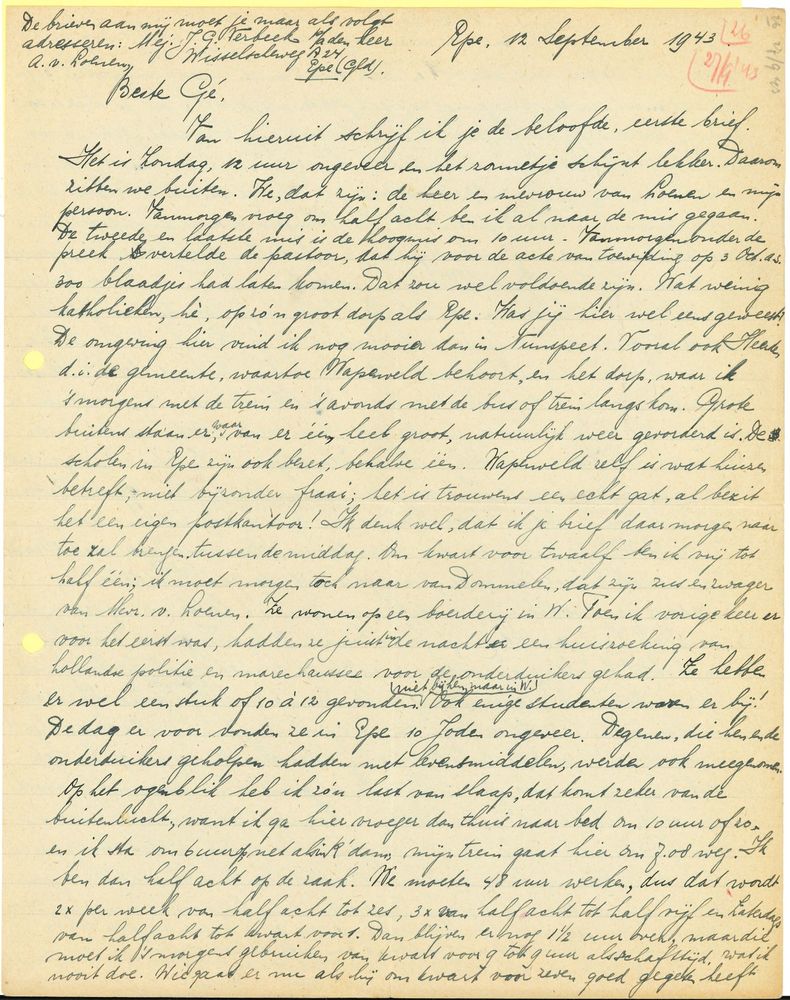 De brieven aan mij moet je maar als volgt
adresseren: Mej. J. G. Verbeek p/a den heer
A. v. Loenen, Wisselscheweg A 24
Epe (Gld).
Epe, 12 September 1943
26
27/9 '43
Beste Gé,
Van hieruit schrijf ik je de beloofde, eerste brief.
Het is Zondag, 12 uur ongeveer en het zonnetje schijnt lekker. Daarom
zitten we buiten. We, dat zijn: de heer en mevrouw van Loenen en mijn
persoon. Vanmorgen vroeg om half acht ben ik al naar de mis gegaan.
De tweede en laatste mis is de hoogmis om 10 uur. Vanmorgen onder de
preek vertelde de pastoor, dat hij voor de acte van toewijding op 3 Oct. a.s.
300 blaadjes had laten komen. Dat zou wel voldoende zijn. Wat weinig
katholieken, hè, op zo'n groot dorp als Epe. Was jij hier wel eens geweest?
De omgeving hier vind ik nog mooier dan in Nunspeet. Vooral ook Heerde,
d.i. de gemeente, waartoe Wapenveld behoort, en het dorp, waar ik
's morgens met de trein en 's avonds met de bus of trein langs kom. Grote
buitens staan er, waarvan er één, heel groot, natuurlijk weer gevorderd is. De
scholen in Epe zijn ook bezet, behalve één. Wapenveld zelf is wat huizen
betreft, niet bijzonder fraai; het is trouwens een echt gat, al bezit
het een eigen postkantoor! Ik denk wel, dat ik je brief daar morgen naar
toe zal brengen tussen de middag. Om kwart voor twaalf ben ik vrij tot
half één; ik moet morgen toch naar van Dommelen, dat zijn zus en zwager
van Mevr. v. Loenen. Ze wonen op een boerderij in W. Toen ik vorige keer er
voor het eerst was, hadden ze juist in de nacht een huiszoeking van
hollandse politie en marechaussee voor de onderduikers gehad. Ze hebben
er wel een stuk of 10 à 12 gevonden (niet bij hen, maar in W.) Ook enige studenten waren er bij!
De dag er voor vonden ze in Epe 10 Joden ongeveer. Degenen, die hen en de
onderduikers geholpen hadden met levensmiddelen, werden ook meegenomen.
Op het ogenblik heb ik zó'n last van slaap, dat komt zeker van de
buitenlucht, want ik ga hier vroeger dan thuis naar bed om 10 uur of zo,
en ik sta om 6 uur op net als in A'dam, mijn trein gaat hier om 7.08 weg. Ik
ben dan half acht op de zaak. We moeten 48 uur werken, dus dat wordt
2x per week van half acht tot zes, 3x van half acht tot half vijf en Zaterdags
van half acht tot kwart voor 1. Dan blijven er nog 1½ uur over, maar die
moet ik 's morgens gebruiken van kwart voor 9 tot 9 uur als schafttijd, wat ik
nooit doe. Wie gaat er nu als hij om kwart voor zeven goed gegeten heeft